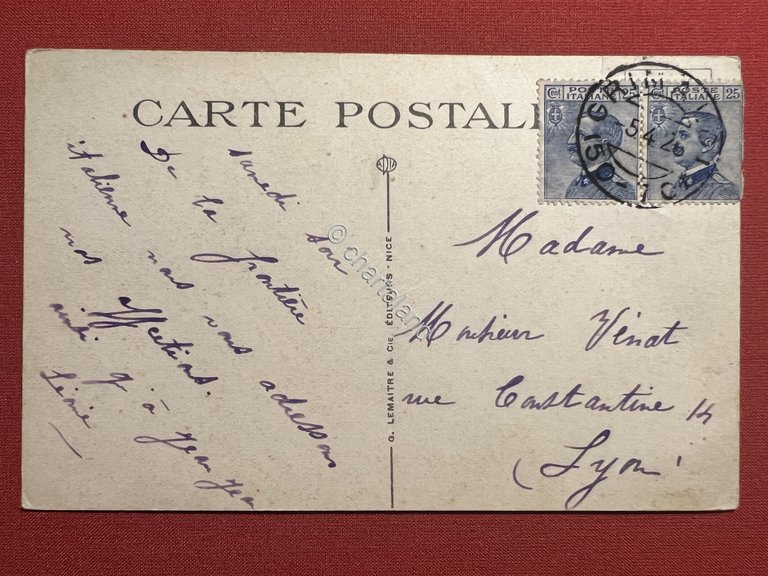 CARTE POSTALE
Cmi POSTE ITALIANE 25
Cmi POSTE ITALIANE 25
5.4.26
samedi soir
De la frontière
italienne nous vous adressons
nos affections.
ainsi q'à Jean
Léonie
ADIA
G. LEMAITRE & CIE, ÉDITEURS - NICE
© chartaland
Madame
Monsieur Vinat
rue Constantine 14
(Lyon)